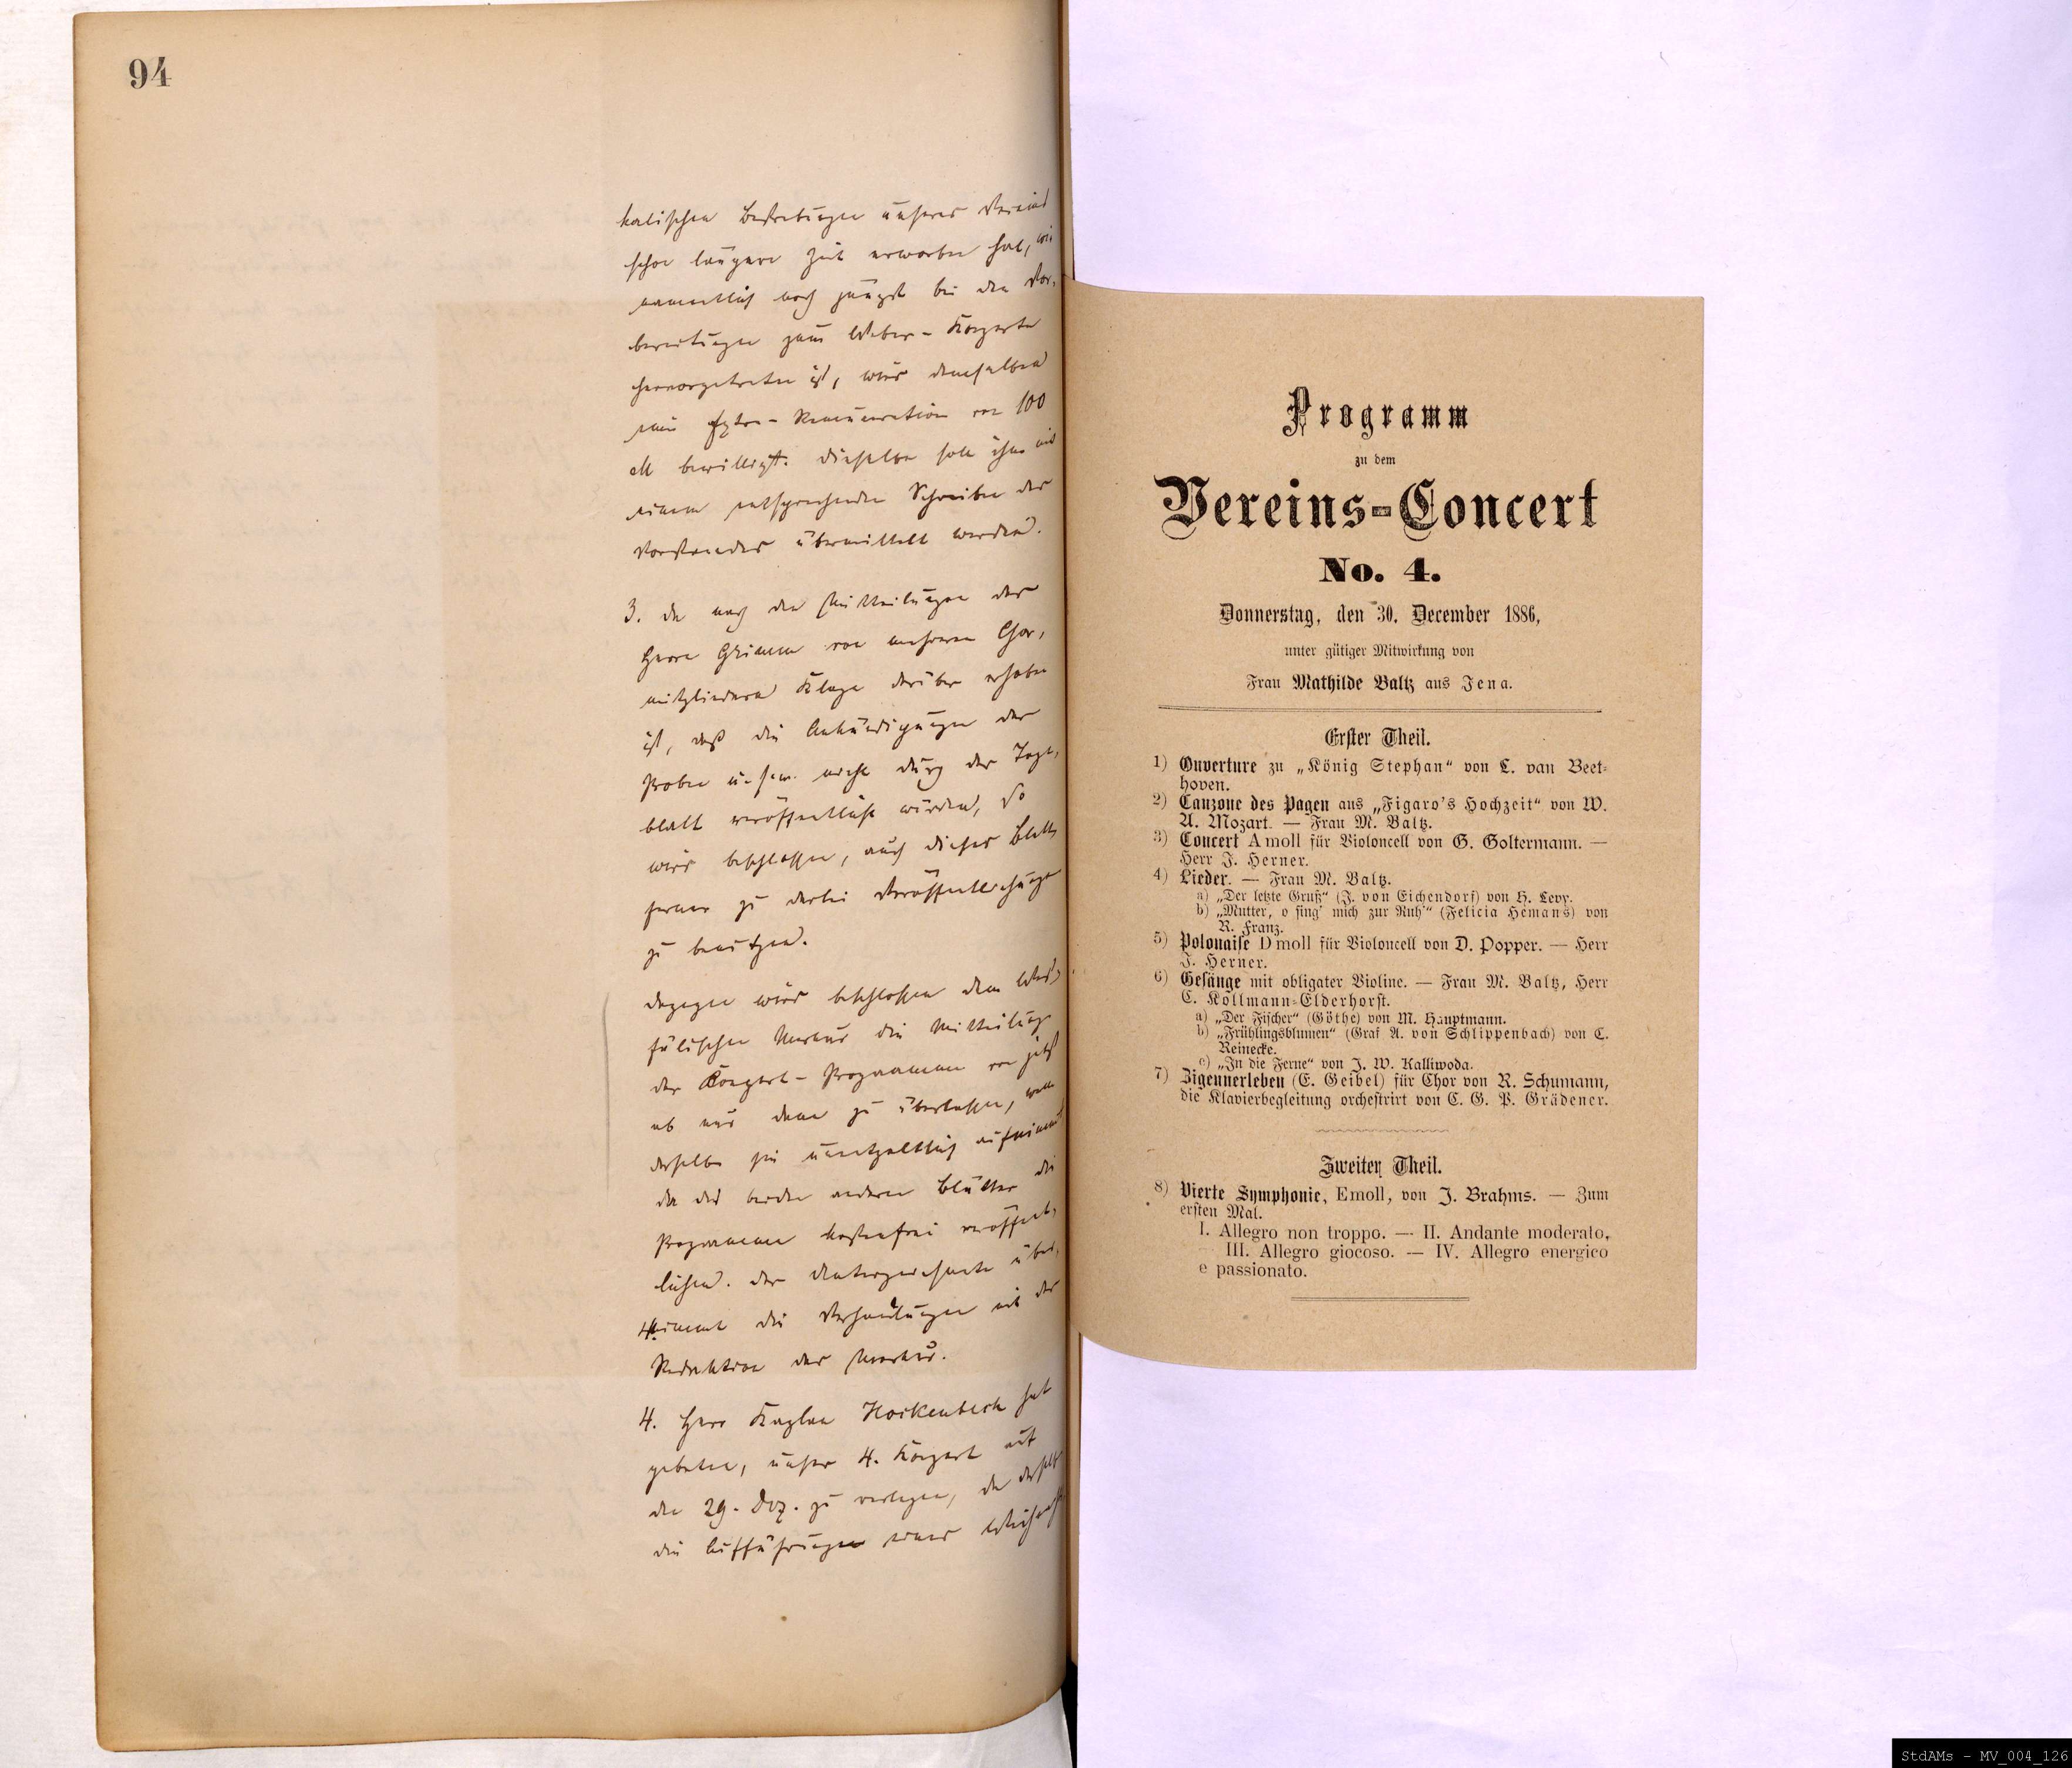 94
kalischen Bestrebungen unseres Vereins
schon längere Zeit erworben hat, wie
namentlich noch jüngst bei den Vor-
bereitungen zum Weber-Konzerte
hervorgetreten ist, wird demselben
eine Extra-Remuneration von 100
M bewilligt. Dieselbe soll ihm mit
einem entsprechenden Schreiben des
Vorstandes übermittelt werden.
3. Da nach den Mittheilungen des
Herrn Grimm von mehreren Chor-
mitgliedern Klage darüber erhoben
ist, daß die Ankündigungen der
Proben u.s.w. nicht durch das Tage-
blatt veröffentlicht würden, so
wird beschlossen, auch dieses Blatt
ferner zu derlei Veröffentlichungen
zu benutzen.
Dagegen wird beschlossen dem West-
fälischen Merkur die Mittheilung
der Konzert-Programme von jetzt
ab nur dann zu überlassen, wenn
derselbe sie unentgeltlich aufnimmt
da die beiden anderen Blätter die
Programme kostenfrei veröffent-
lichen. Der Unterzeichnete über-
nimmt die Verhandlungen mit der
Redaktion des Merkur.
4. Herr Kaplan Hockenbeck hat
gebeten, unser 4. Konzert auf
den 29. Dez. zu verlegen, da derselbe
die Aufführungen eines Weihnachts
Programm
zu dem
Vereins-Concert
No. 4.
Donnerstag, den 30. December 1886,
unter gütiger Mitwirkung von
Frau Mathilde Baltz aus Jena.
Erster Theil.
1) Ouverture zu „König Stephan“ von L. van Beet-
hoven.
2) Canzone des Pagen aus „Figaro's Hochzeit“ von W.
A. Mozart. — Frau M. Baltz.
3) Concert A moll für Violoncell von G. Goltermann. —
Herr J. Herner.
4) Lieder. — Frau M. Baltz.
a) „Der letzte Gruß“ (J. von Eichendorf) von H. Levy.
b) „Mutter, o sing' mich zur Ruh'“ (Felicia Hemans) von
R. Franz.
5) Polonaise D moll für Violoncell von D. Popper. — Herr
J. Herner.
6) Gesänge mit obligater Violine. — Frau M. Baltz, Herr
C. Kollmann-Elderhorst.
a) „Der Fischer“ (Göthe) von M. Hauptmann.
b) „Frühlingsblumen“ (Graf A. von Schlippenbach) von C.
Reinecke.
c) „In die Ferne“ von J. W. Kalliwoda.
7) Zigeunerleben (E. Geibel) für Chor von R. Schumann,
die Klavierbegleitung orchestrirt von C. G. P. Grädener.
Zweiter Theil.
8) Vierte Symphonie, Emoll, von J. Brahms. — Zum
ersten Mal.
I. Allegro non troppo. — II. Andante moderato,
— III. Allegro giocoso. — IV. Allegro energico
e passionato.
StdAMs - MV_004_126